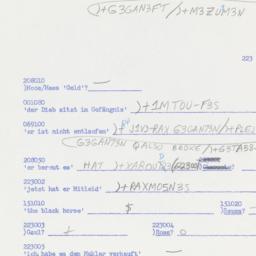 )+G3GAN3FT/)+M3ZUM3N
223
208010
)Moos/Maas 'Geld'?)
001080
'der Dieb sitzt im Gefängnis' )+1MTOU-F3S
069100
'er ist nicht entlaufen' )+J1VD-RAX G3GANT3N/+PLE
G3GANT3N QALSO BROKE/)+G3TA38-
208030
'er bereut es' HAT )+XAROUT3
223002
'jetzt hat er Mitleid' )+RAXMO5N3S
151010
'the black horse' $
151020
223003
)Gaul? +
223004
)Ross? 0
223005
'ich habe es dem Makler verkauft'